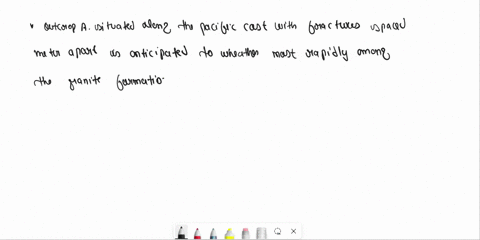 * Outcrop A. situated along the pacific cost with foractures spaced
meter apart is anticipated to wheather most rapidly among
the granite formatio